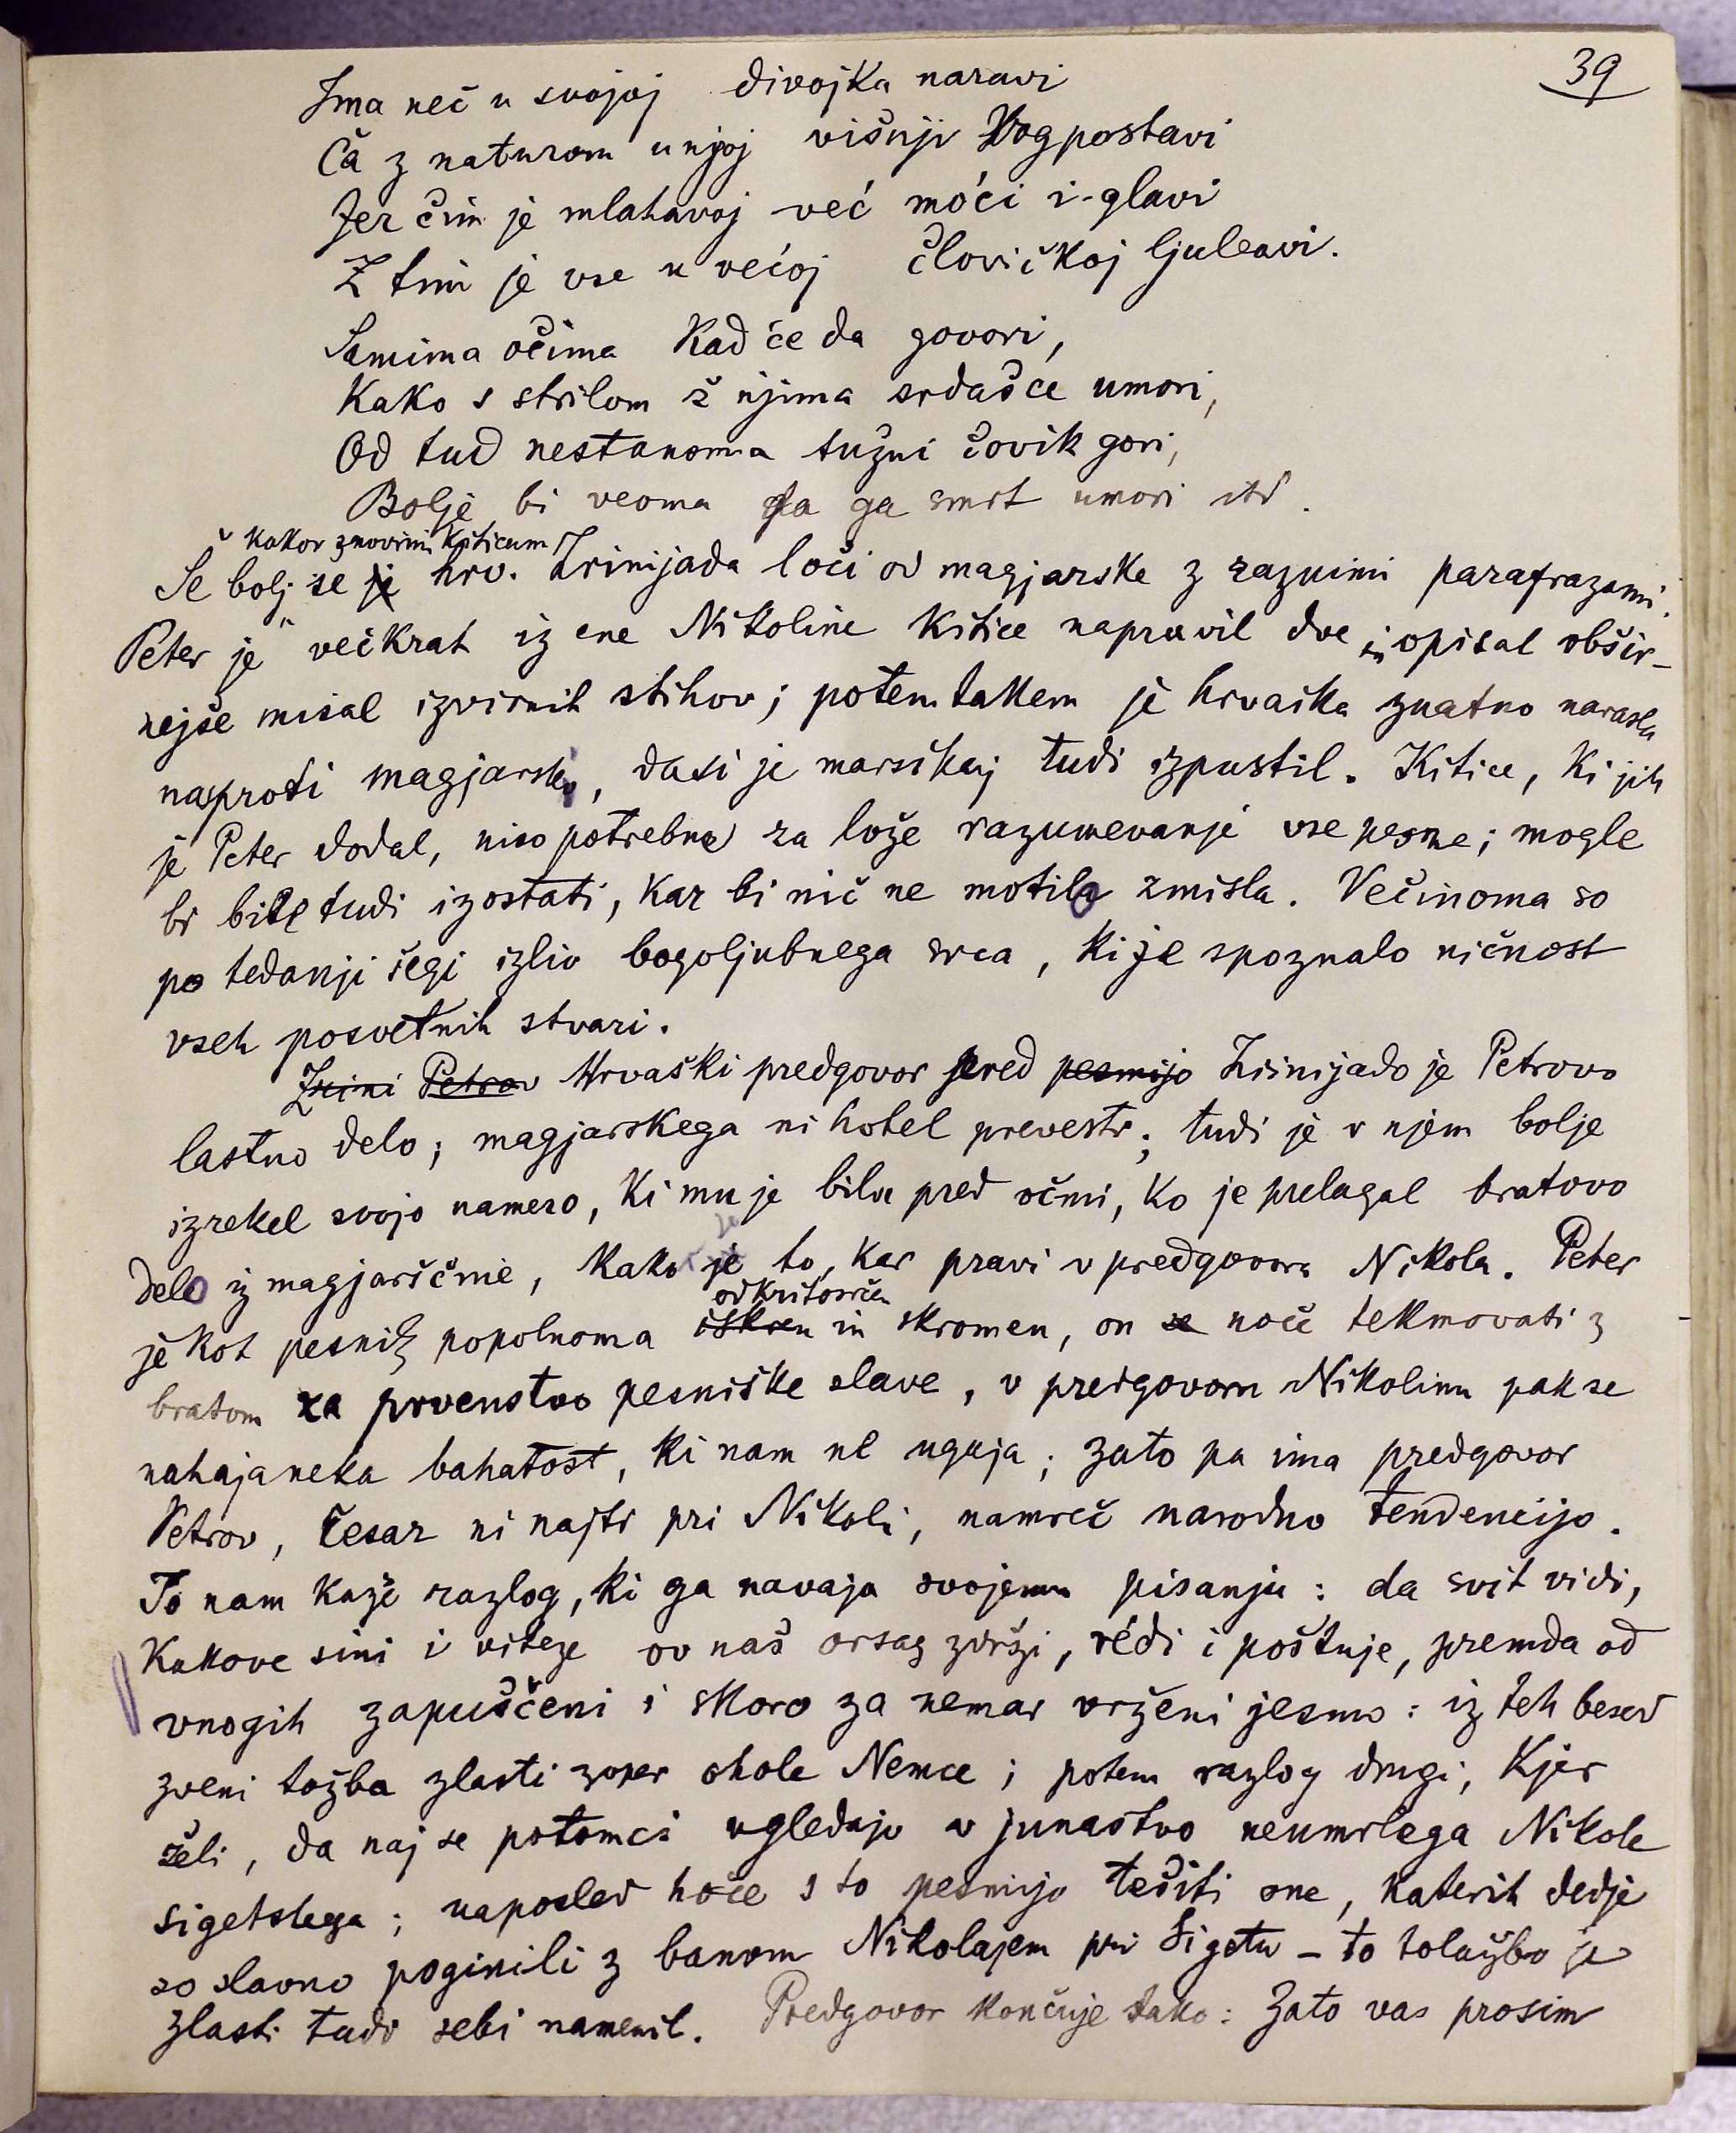 39
Ima neč u svojoj divojka naravi
Ča z naturom u njoj višnji Bog postavi
Jer čim je mlahavoj već móći i glavi
Z tim je vse u većoj človičkoj ljubavi.
Samima očima kad će da govori,
Kako s strilom ž njima srdašce umori,
Od tud nestanoma tužni čovik gori,
Bolje bi veoma da ga smrt umori itd.
kakor z novimi kiticam
Še bolj se je hrv. Zrinijada loči od magjarske z raznimi parafrazami.
Peter je večkrat iz ene Nikoline kitice napravil dve in opisal obšir-
nejše misal izvirnih stihov; potemtakem je hrvaška znatno narasla
naproti magjarski, dasi je marsikaj tudi izpustil. Kitice, ki jih
je Peter dodal, niso potrebne za lože razumevanje vse pesme; mogle
bi bile tudi izostati, kar bi nič ne motilo zmisla. Večinoma so
po tedanji šegi izliv bogoljubnega srca, ki je spoznalo ničnost
vseh posvetnih stvari.
Zrini Petrov Hrvaški predgovor pred pesmijo Zrinijado je Petrovo
lastno delo; magjarskega ni hotel prevesti; tudi je v njem bolje
izrekel svojo namero, ki mu je bila pred očmi, ko je prelagal bratovo
delo iz magjarščine, kako je to, kar pravi v predgovoru Nikola. Peter
odkritosrčen
je kot pesnik popolnoma iskren in skromen, on se noče tekmovati z
bratom za prvenstvo pesniške slave, v predgovoru Nikolinu pak se
nahaja neka bahatost, ki nam ne ugaja; zato pa ima predgovor
Petrov, česar ni najti pri Nikoli, namreč narodno tendencijo.
To nam kaže razlog, ki ga navaja svojemu pisanju: da svit vidi,
kakove sini i viteze ov naš orsag zdrži, rédi i poštuje, premda od
vnogih zapuščeni i skoro za nemar vrženi jesmo: iz teh besed
zveni tožba zlasti zoper ohole Nemce; potem razlog drugi, kjer
želi, da naj se potomci ugledajo v junaštvo neumrlega Nikole
sigetskega; naposled hoče s to pesmijo tešiti one, katerih dedje
so slavno poginili z banom Nikolajem pri Sigetu – to tolažbo je
zlasti tudi sebi namenil. Predgovor končuje tako: Zato vas prosim